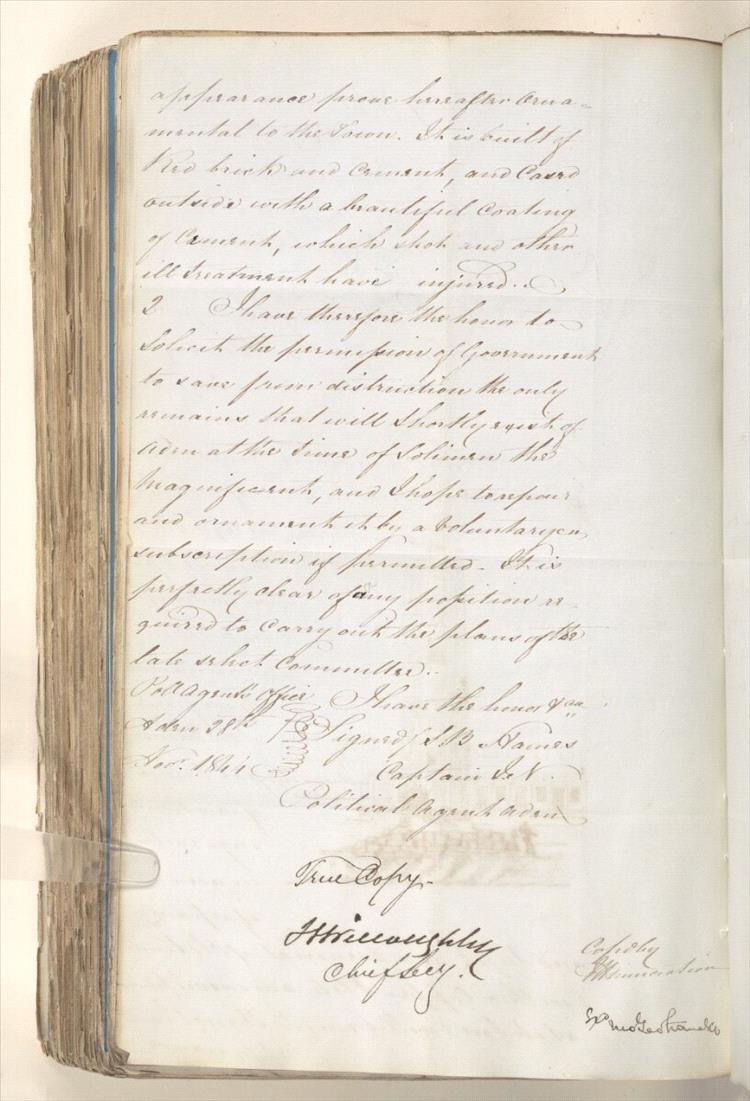 appearance prove hereafter Orna-
mental to the Town. It is built of
Red brick and Cement, and Cased
outside with a beautiful Coating
of Cement, which shot and other
ill treatment have injured..
2 I have therefore the honor to
Solicit the permission of Government
to save from distruction the only
remains that will Shortly exist of
Aden at the time of Solimen the
Magnificent, and I hope to repair
and ornament it by a Voluntary
subscription if permitted. It is
perfectly clear of any position re-
quired to Carry out the plans of the
late select Committee..
Poll Agent's Office I have the honor &ca
Aden 28th Signed / S B Haines
Novr. 1844 Captain I. N.
Political Agent Aden
True Copy.
Chief Secy.
Copd by